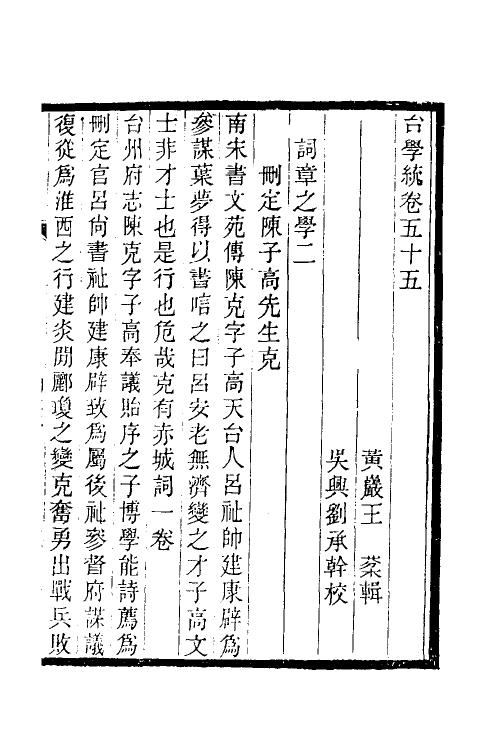 台學統卷五十五
黃巖王 棻輯
吳興劉承幹校
詞章之學二
刪定陳子高先生克
南宋書文苑傳陳克字子高天台人呂祉帥建康辟爲
參謀葉夢得以書唁之曰呂安老無濟變之才子高文
士非才士也是行也危哉克有赤城詞一卷
台州府志陳克字子高奉議貽序之子博學能詩薦爲
刪定官呂尚書祉帥建康辟致爲屬後祉參督府謀議
復從爲淮西之行建炎閒酈瓊之變克奮勇出戰兵敗